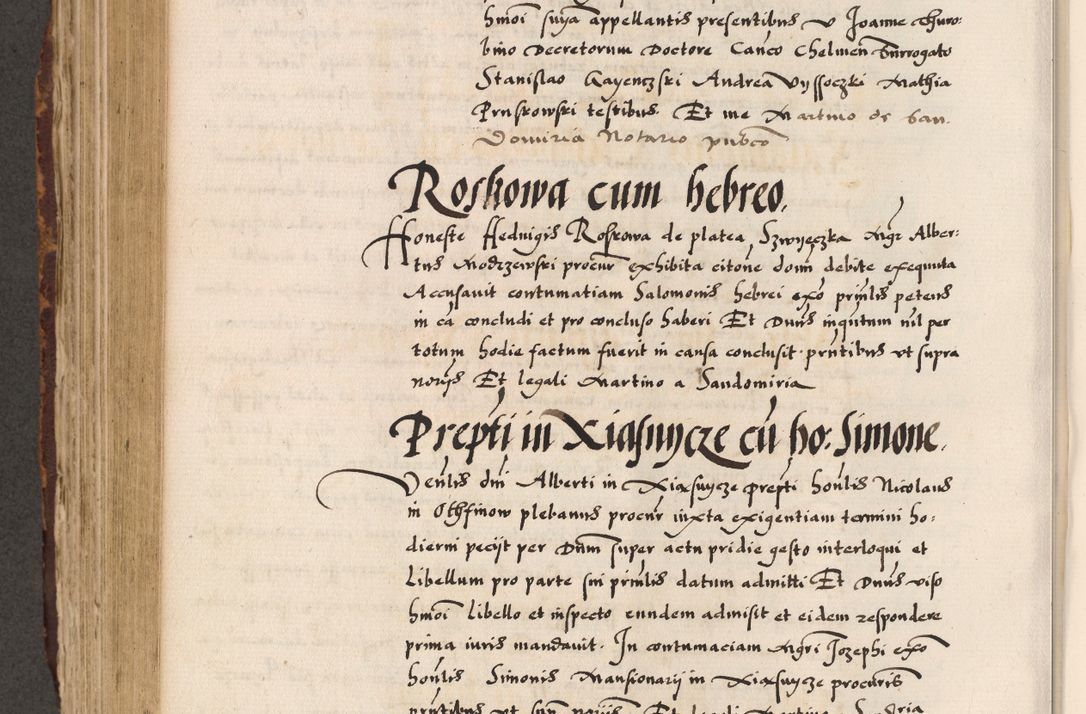 hmoi suya appellantis presentibus v Joanne Thuro:
bino Decretorum Doctore Canco Chelmen Surrogato
Stanislao Gayenczski Andrea Vyssoczki Mathia
Pruskowski testibus. Et me Martino de San-
Domiria Notario pubco
Roskowa cum hebreo.
Honeste Hedvigis Roskowa de platea Szwyeczka Mgr Alber-
tus Modrzewski procur exhibita citone domi debite exequuta
Accusavit contumatiam Salomonis hebrei exo prinlis petens
in ca concludi et pro concluso haberi Et Duns inquitum nil per
totum hodie factum fuerit in causa conclusit prntibus vt supra
norijs Et legali Martino a Sandomiria
Prepti in Xiasnycze cu ho: Simone.
Venlis dni Alberti in Xiaxnycze prepti honlis Nicolaus
in Othfinow plebanus procur iuxta exigentiam termini ho:
dierni pecijt per Dnum super actu pridie gesto interloqui et
Libellum pro parte sui prinlis datum admitti Et Duns viso
hmoi Libello et inspecto eundem admisit et eidem respondere
prima iuris mandavit. In contumaciam Mgri Jozephi exo
honlis Simonis Mansionarij in Xiaxnycze procuris
prntibus vt supra norijs Et legali Martino Sandria